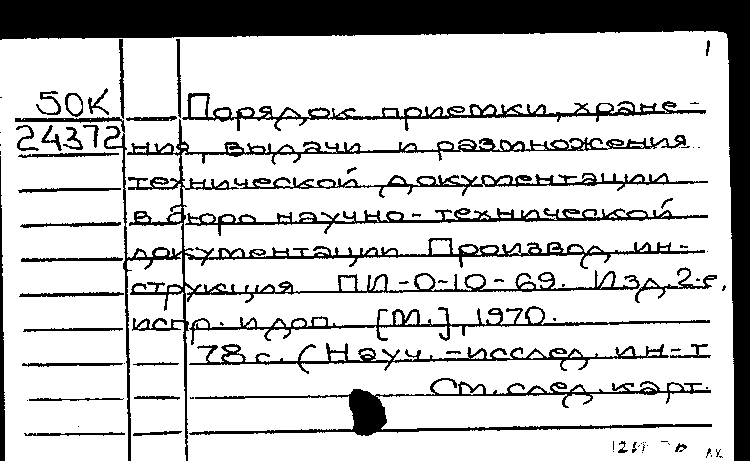 1
50К
24372
Порядок приемки, хране-
ния, выдачи и размножения
технической документации
в бюро научно-технической
документации Производ. ин-
струкция ПИ-0-10-69. Изд. 2-е,
испр. и доп. [М.], 1970.
78 с. (Науч.-исслед. ин-т
См. след. карт.